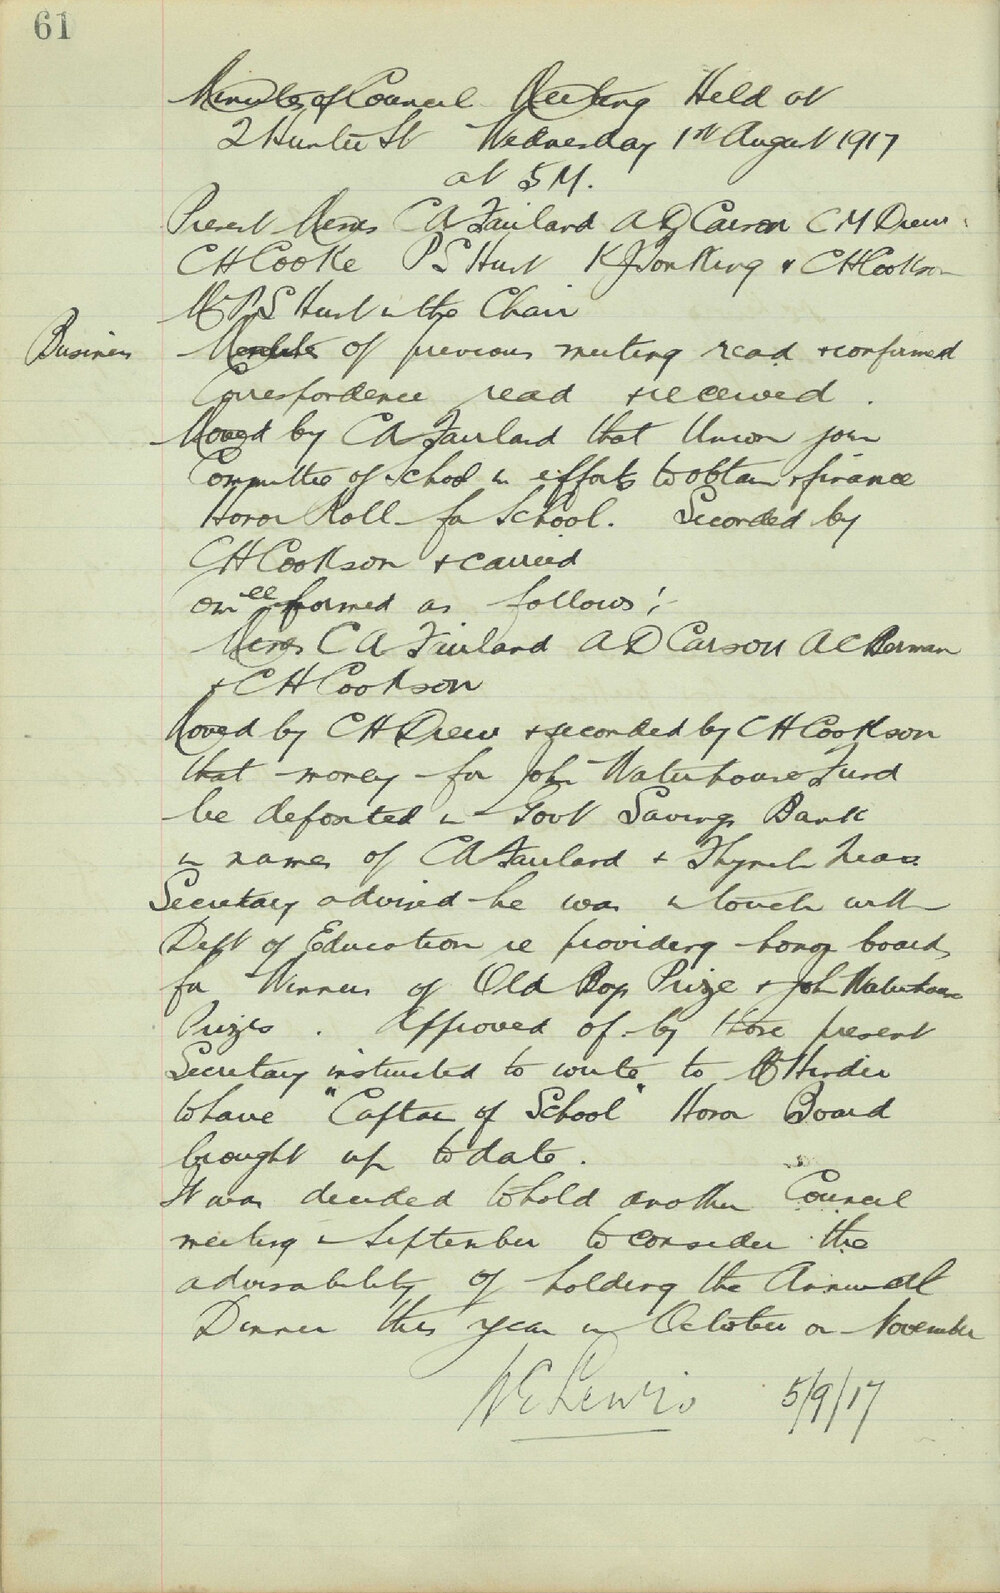 61
Minutes of Council Meeting Held at
2 Hunter St Wednesday 1st August 1917
at 5 M.
Present Messrs C A Fairland A D Carson C M Drew
C H Cooke P S Hunt K J Bonking + C H Cookson
Mr P S Hunt in the Chair
Business Minutes of previous meeting read + confirmed
Correspondence read + received.
Moved by C A Fairland that Union join
Committee of School in efforts to obtain + finance
Honor Roll for School. Seconded by
C H Cookson + carried
formed as follows :-
Messrs C A Fairland A D Carson A C Berman
+ C H Cookson
Moved by C H Drew + seconded by C H Cookson
that money for John Waterhouse Fund
be deposited in Govt Savings Bank
in names of C A Fairland +
Secretary advised he was in touch with
Dept of Education re providing honor boards
for Winners of Old Boys Prize + John Waterhouse
Prizes. Approved of by those present
Secretary instructed to write to Mr
to have "Captain of School" Honor Board
brought up to date.
It was decided to hold another Council
meeting in September to consider the
advisability of holding the Annual
Dinner this year in October or November
Lewis 5/9/17